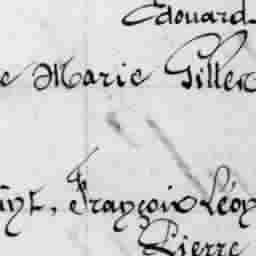 Edouard
e Marie Gilles
yt, François Léop
Pierre